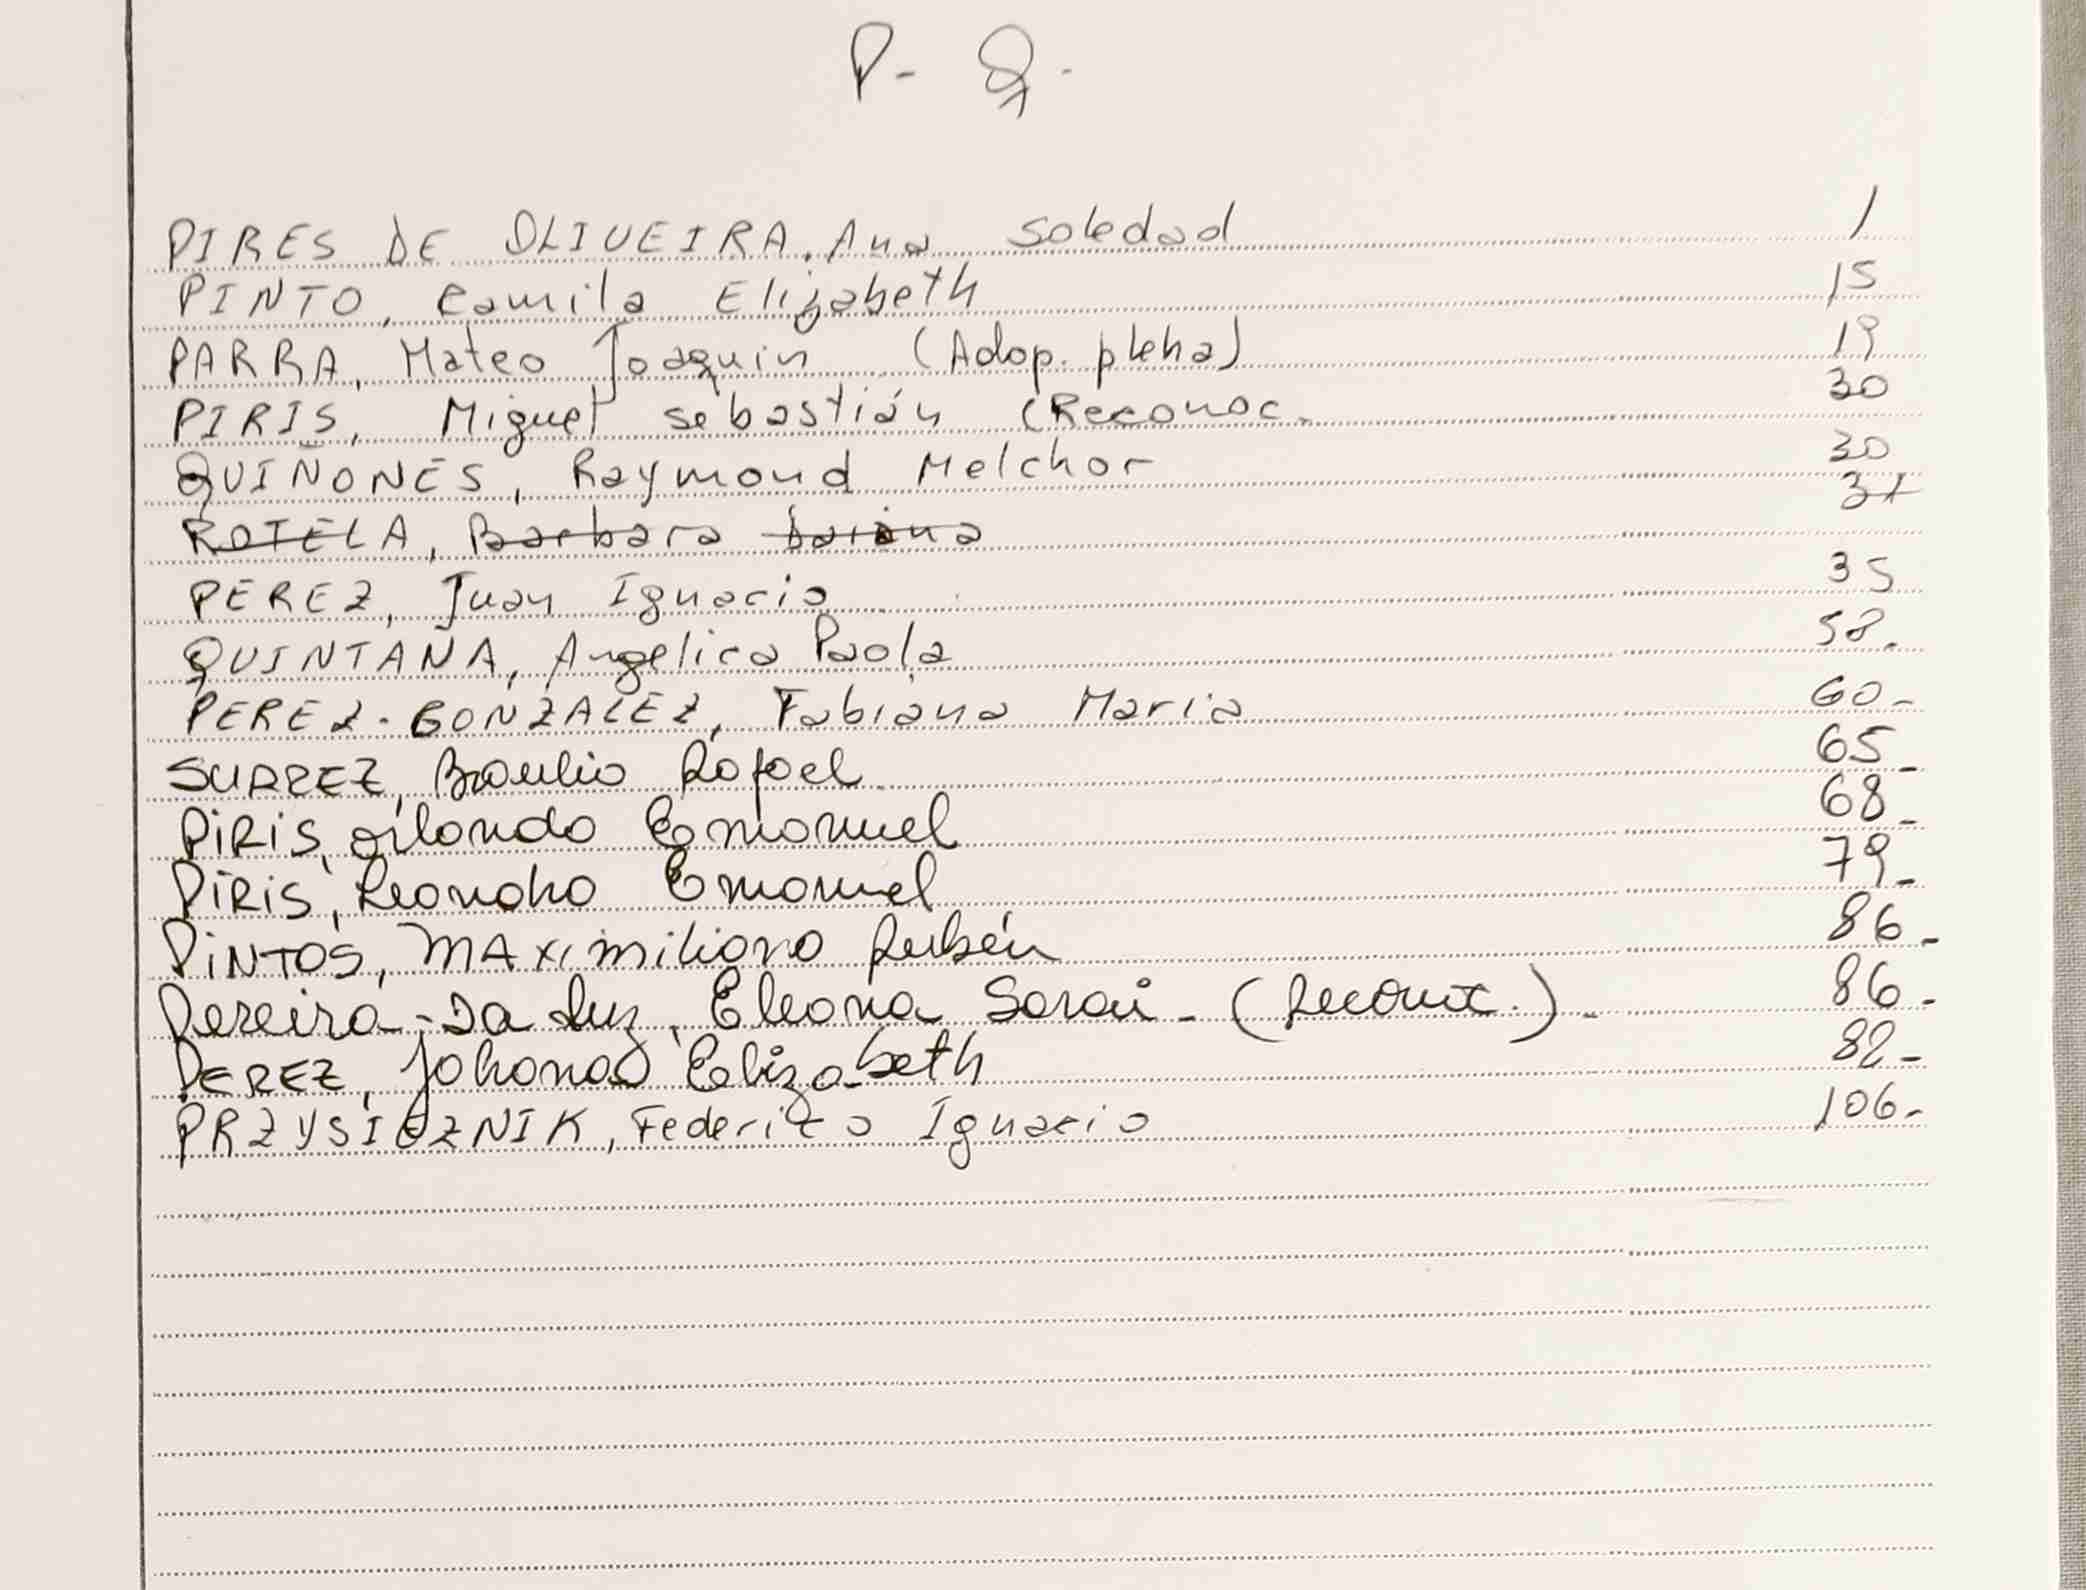 P- Q-
PIRES DE OLIVEIRA, Ana Soledad 1
PINTO, Camila Elizabeth 15
PARRA, Mateo Joaquin (Adop. plena) 19
PIRIS, Miguel Sebastián (Reconoc. 30
QUIÑONES, Raymond Melchor 30
ROTELA, Barbara Daiana 31
PEREZ, Juan Ignacio 35
QUINTANA, Angelica Paola 58.
PEREZ-GONZALEZ, Fabiana Maria 60-
SUAREZ, Braulio Rafael 65-
PIRIS, orlando Emanuel 68-
PIRIS, Leandro Emanuel 79-
PINTOS, MAximiliano Rubén 86-
Pereira-Da Luz, Eleona Sarai - (Reconoc.)- 86-
PEREZ, Johana Elizabeth 82-
PRZYSIEZNIK, Federico Ignacio 106-